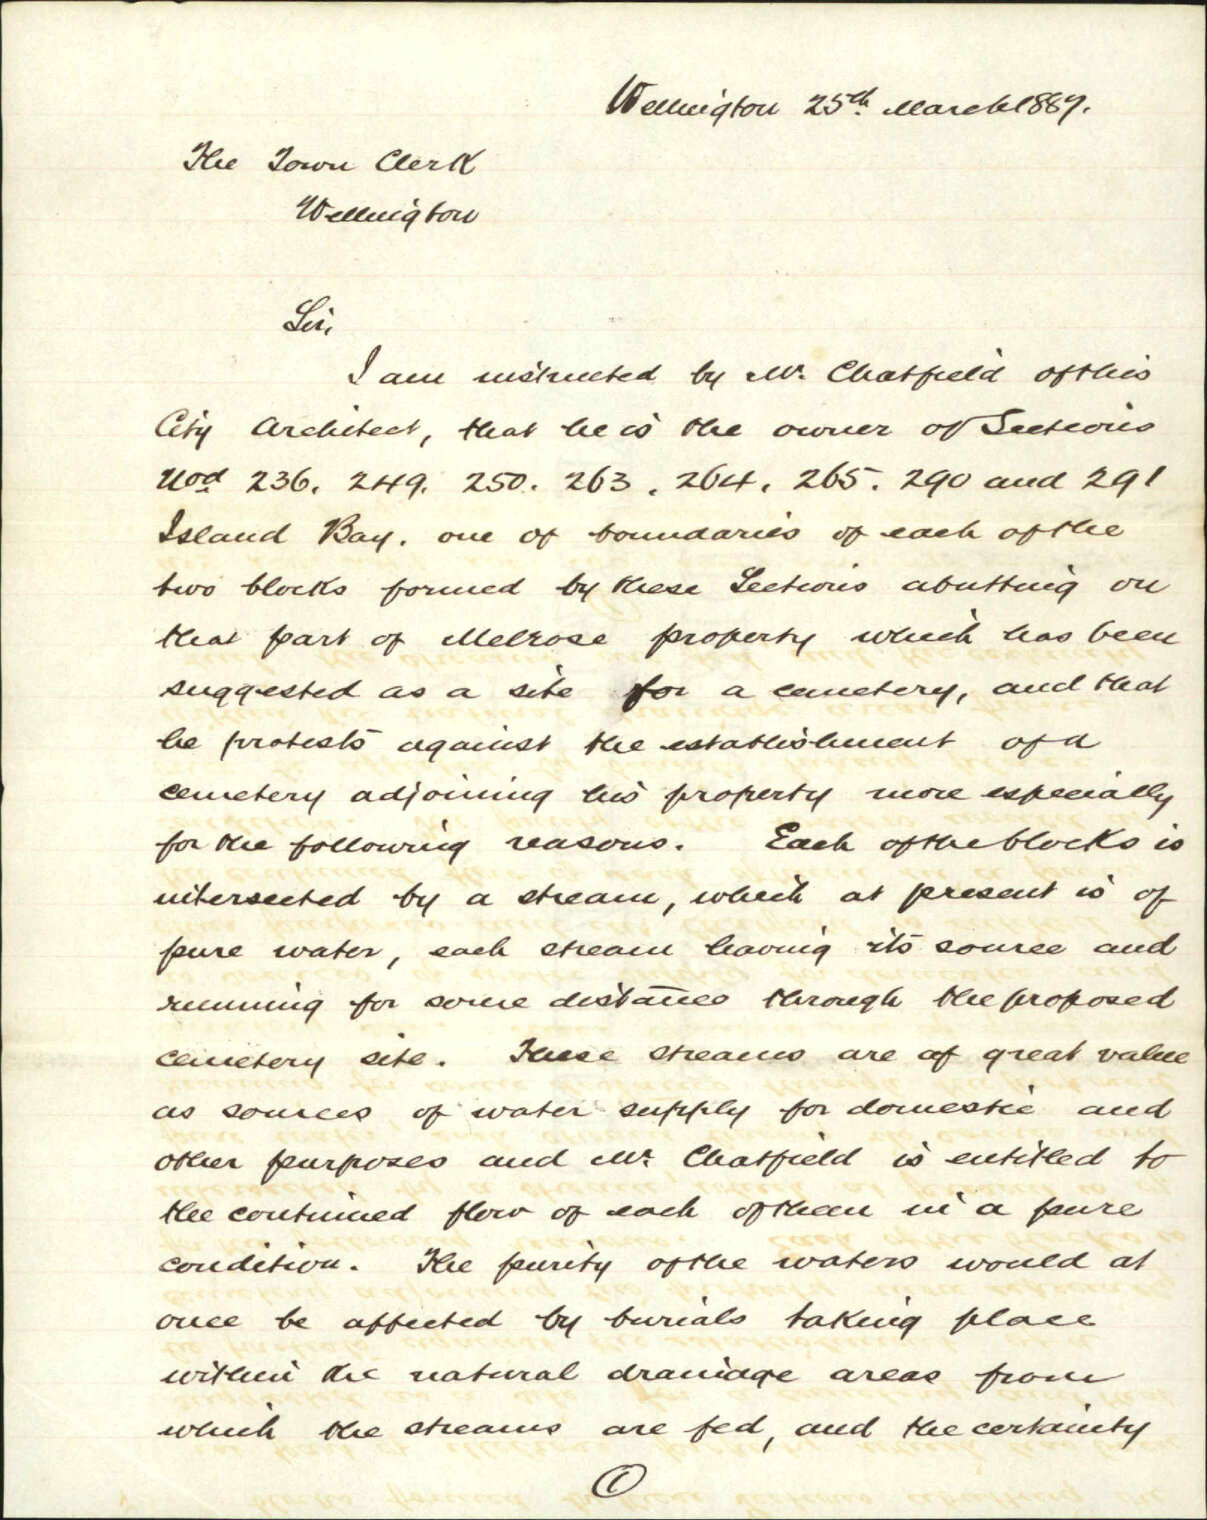 Wellington 25th March 1889.
The Town Clerk
Wellington
Sir,
I am instructed by Mr. Chatfield of this
City Architect, that he is the owner of Sections
Nos 236. 249. 250. 263. 264. 265. 290 and 291
Island Bay. one of boundaries of each of the
two blocks formed by these Sections abutting on
that part of Melrose property which has been
suggested as a site for a cemetery, and that
he protests against the establishment of a
cemetery adjoining his property more especially
for the following reasons. Each of the blocks is
intersected by a stream, which at present is of
pure water, each stream having its source and
running for some distance through the proposed
cemetery site. These streams are of great value
as sources of water supply for domestic and
other purposes and Mr. Chatfield is entitled to
the continued flow of each of them in a pure
condition. The purity of the waters would at
once be affected by burials taking place
within the natural drainage areas from
which the streams are fed, and the certainty
1